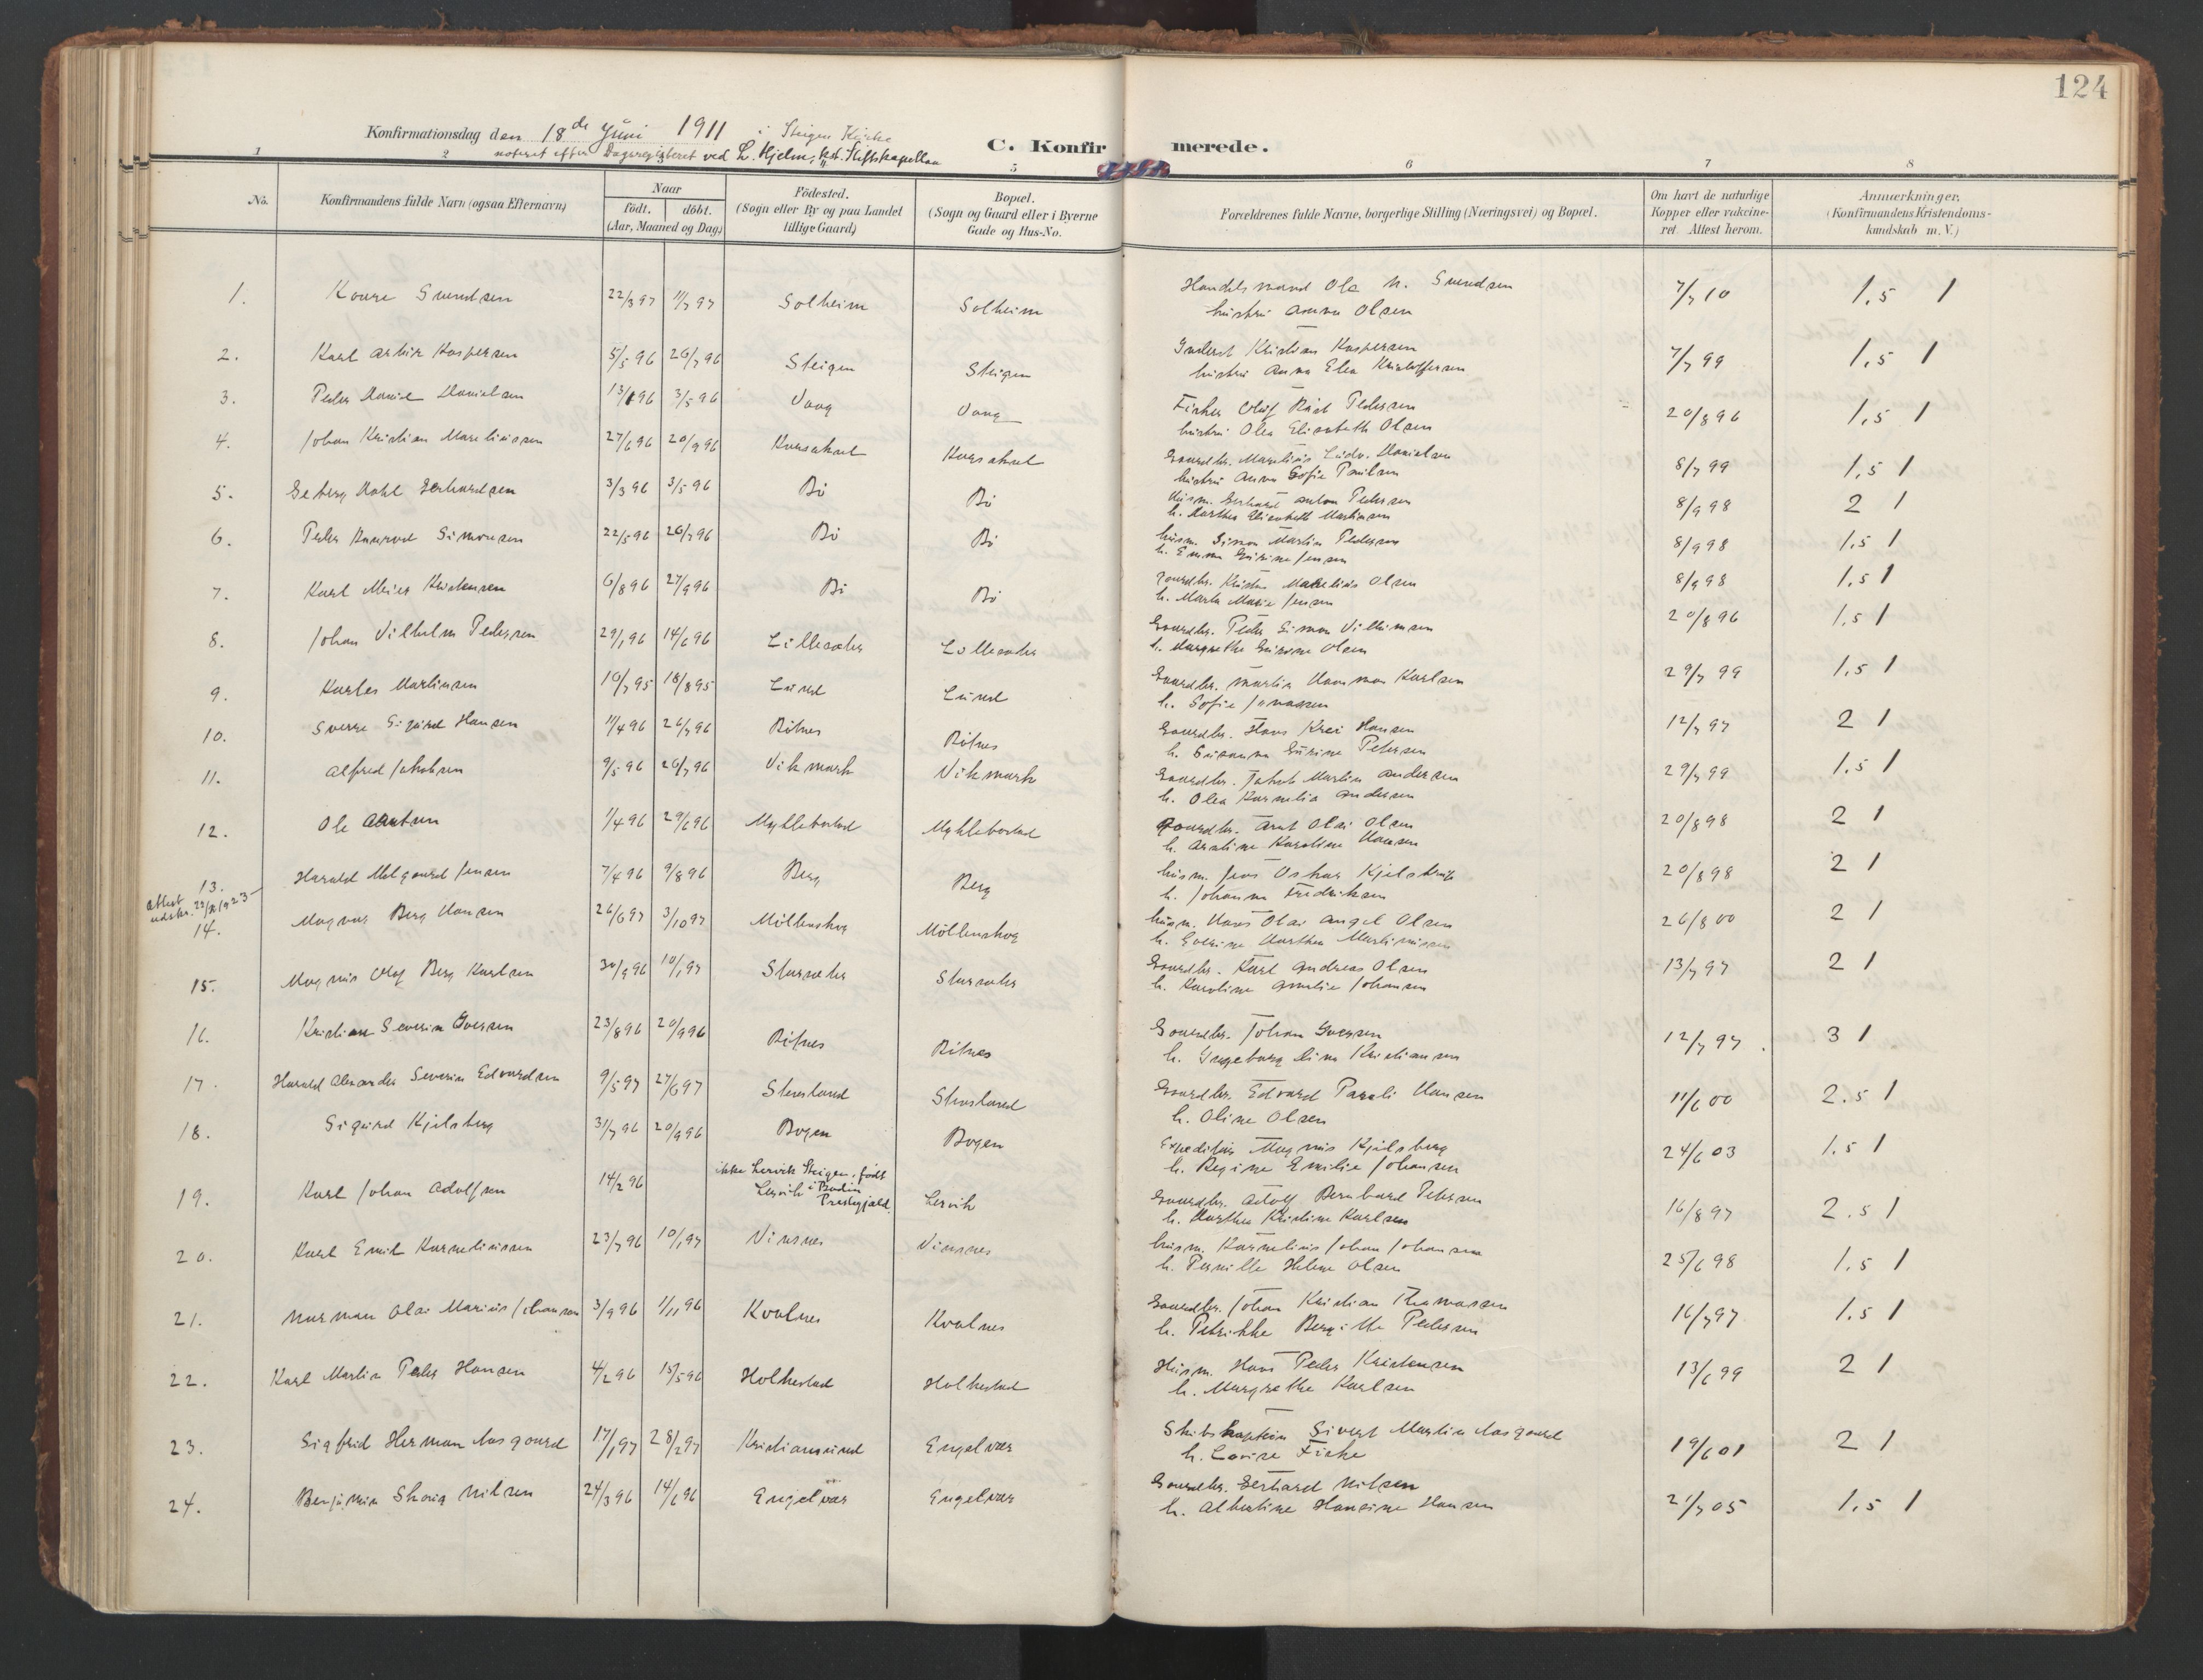 124
Konfirmationsdag den 18de Juni 1911 i Steigen Kirke
noteret efter Dagsregisteret ved L. Hjelm, kst. Stiftskapellan
C. Konfirmerede.
1 2 5 6 7 8
No.
Konfirmandens fulde Navn (ogsaa Efternavn)
Naar
födt. döbt.
(Aar, Maaned og Dag)
Födested.
(Sogn eller By og paa Landet
tillige Gaard)
Bopæl.
(Sogn og Gaard eller i Byerne
Gade og Hus-No.
Forældrenes fulde Navne, borgerlige Stilling (Næringsvei) og Bopæl.
Om havt de naturlige
Kopper eller vakcine-
ret. Attest herom.
Anmærkninger,
(Konfirmandens Kristendoms-
kundskab m. V.)
1. Kaare Svendsen 22/3 97 11/7 97 Solheim Solheim Handelsmand Ole N. Svendsen 7/7 10 1,5 1
hustru Anna Olsen
2. Karl Kaspersen 5/5 96 26/7 96 Steigen Steigen Inderst Kristian Kaspersen 7/7 99 1,5 1
hustru Anna Elea Kristoffersen
3. Peder Daniel Danielsen 13/1 96 3/5 96 Vaag Vaag Fisker Oluf Pedersen 20/8 96 1,5 1
hustru Olea Elisabeth Olsen
4. Johan Kristian Mareliussen 27/6 96 20/9 96 Gaardbr. Marelius Ludv. Danielsen 8/7 99 1,5 1
hustru Anna Sofie Paulsen
5. Dahl Gerhardsen 3/3 96 3/5 96 Bö Bö Husm. Gerhard Anton Pedersen 8/9 98 2 1
h. Marthea Elisabeth Martinsen
6. Peder Simonsen 22/5 96 26/7 96 Bö Bö husm. Simon Martin Pedersen 8/9 98 1,5 1
h. Emma Jensen
7. Karl Meier Kristensen 6/8 96 27/9 96 Bö Bö Gaardbr. Kristen Marelius Olsen 8/9 98 1,5 1
h. Marta Marie Jensen
8. Johan Vilhelm Pedersen 29/1 96 14/6 96 Lillesæter Lillesæter Gaardbr. Peder Simon Villumsen 20/8 96 1,5 1
h. Margrethe Olsen
9. Karles Martinsen 10/7 95 18/8 95 Lund Lund Gaardbr. Martin Karlsen 29/7 99 1,5 1
h. Sofie Jonassen
10. Sverre Sigurd Hansen 11/4 96 26/7 96 Bötnes Bötnes Gaardbr. Hans Krei Hansen 12/7 97 2 1
h. Susanna Surine Petersen
11. Alfred Jakobsen 9/5 96 26/7 96 Vikmark Vikmark Gaardbr. Jakob Martin Andersen 29/7 99 1,5 1
h. Olea Kornelia Andersen
12. Ole Arntsen 1/4 96 29/6 96 Myklebostad Myklebostad Gaardbr. Arnt Olai Olsen 20/8 98 2 1
h. Karoline Hansen
13. Harald Melgaard Jensen 7/4 96 9/8 96 Berg Berg husm. Jens Oskar 20/8 98 2 1
h. Johanna Fredriksen
attest
udstr.
14. Magnus Berg Hansen 26/6 97 3/10 97 Möllenskog Möllenskog husm. Hans Olai Angel Olsen 26/8 00 2 1
h. Marthea Martinussen
15. Magnus Olaf Berg Karlsen 30/9 96 10/1 97 Storsæter Storsæter Gaardbr. Karl Andreas Olsen 13/7 97 2 1
h. Karoline Amalie Johansen
16. Kristian Severin Iversen 23/8 96 20/9 96 Bötnes Bötnes Gaardbr. Johan Iversen 12/7 97. 3 1
h. Ingeborg Dina Kristiansen
17. Harald Alexander Severin Edvardsen 9/5 97 27/6 97 Gaardbr. Edvard Hansen 11/6 00 2.5 1
h. Oline Olsen
18. Sigurd Kjelsberg 31/7 96 20/9 96 Bogen Bogen Expeditör Magnus Kjelsberg 24/6 03 1.5 1
h. Regine Emilie Johansen
19. Karl Johan Adolfsen 14/2 96 ikke Lervik Steigen, födt Lervik i Bodin Prestegjæld. Lervik Gaardbr. Adolf Bernhard Petersen 16/8 97 2.5 1
h. Marthea Kristine Karlsen
20. Karl Emil Korneliussen 23/7 96 10/1 97 Vinsnes Vinsnes husm. Kornelius Johan Johansen 25/6 98 1.5 1
h. Pernille Helene Olsen
21. Norman Olai Marius Johansen 3/9 96 1/11 96 Kvalnes Kvalnes Gaardbr. Johan Kristian Thomassen 16/7 97 1.5 1
h. Petrikke Bergitte Pedersen
22. Karl Martin Peder Hansen 4/2 96 15/5 96 Holkestad Holkestad Husm. Hans Peder Kristensen 13/6 99 2 1
h. Margrethe Karlsen
23. Sigfrid Herman Aasgaard 17/1 97 28/2 97 Kristiansund Engelvær Skibskaptein Sivert Martin Aasgaard 19/6 01 2 1
h. Lovise Ficke
24. Benjamin Skaug Nilsen 24/3 96 14/6 96 Engelvær Engelvær Gaardbr. Gerhard Nilsen 21/7 05 1.5 1
h. Albertine Hansine Hansen